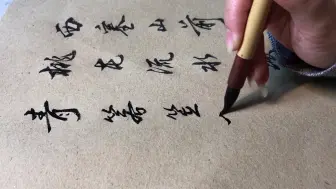 西塞山前
桃花流水
青箬笠